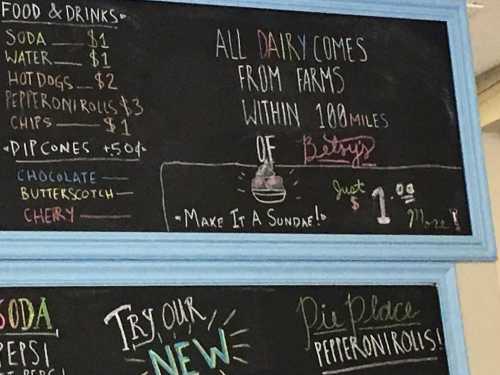 FOOD & DRINKS
SODA $1
WATER $1
HOT DOGS $2
PEPPERONI ROLLS $3
CHIPS $1
DIP CONES +50¢
CHOCOLATE
BUTTERSCOTCH
CHERRY
ALL DAIRY COMES
FROM FARMS
WITHIN 100 MILES
OF Betsy's
MAKE IT A SUNDAE!
Just
$1.00
More!
SODA
PEPSI
TRY OUR
NEW
Pie Place
PEPPERONI ROLLS!